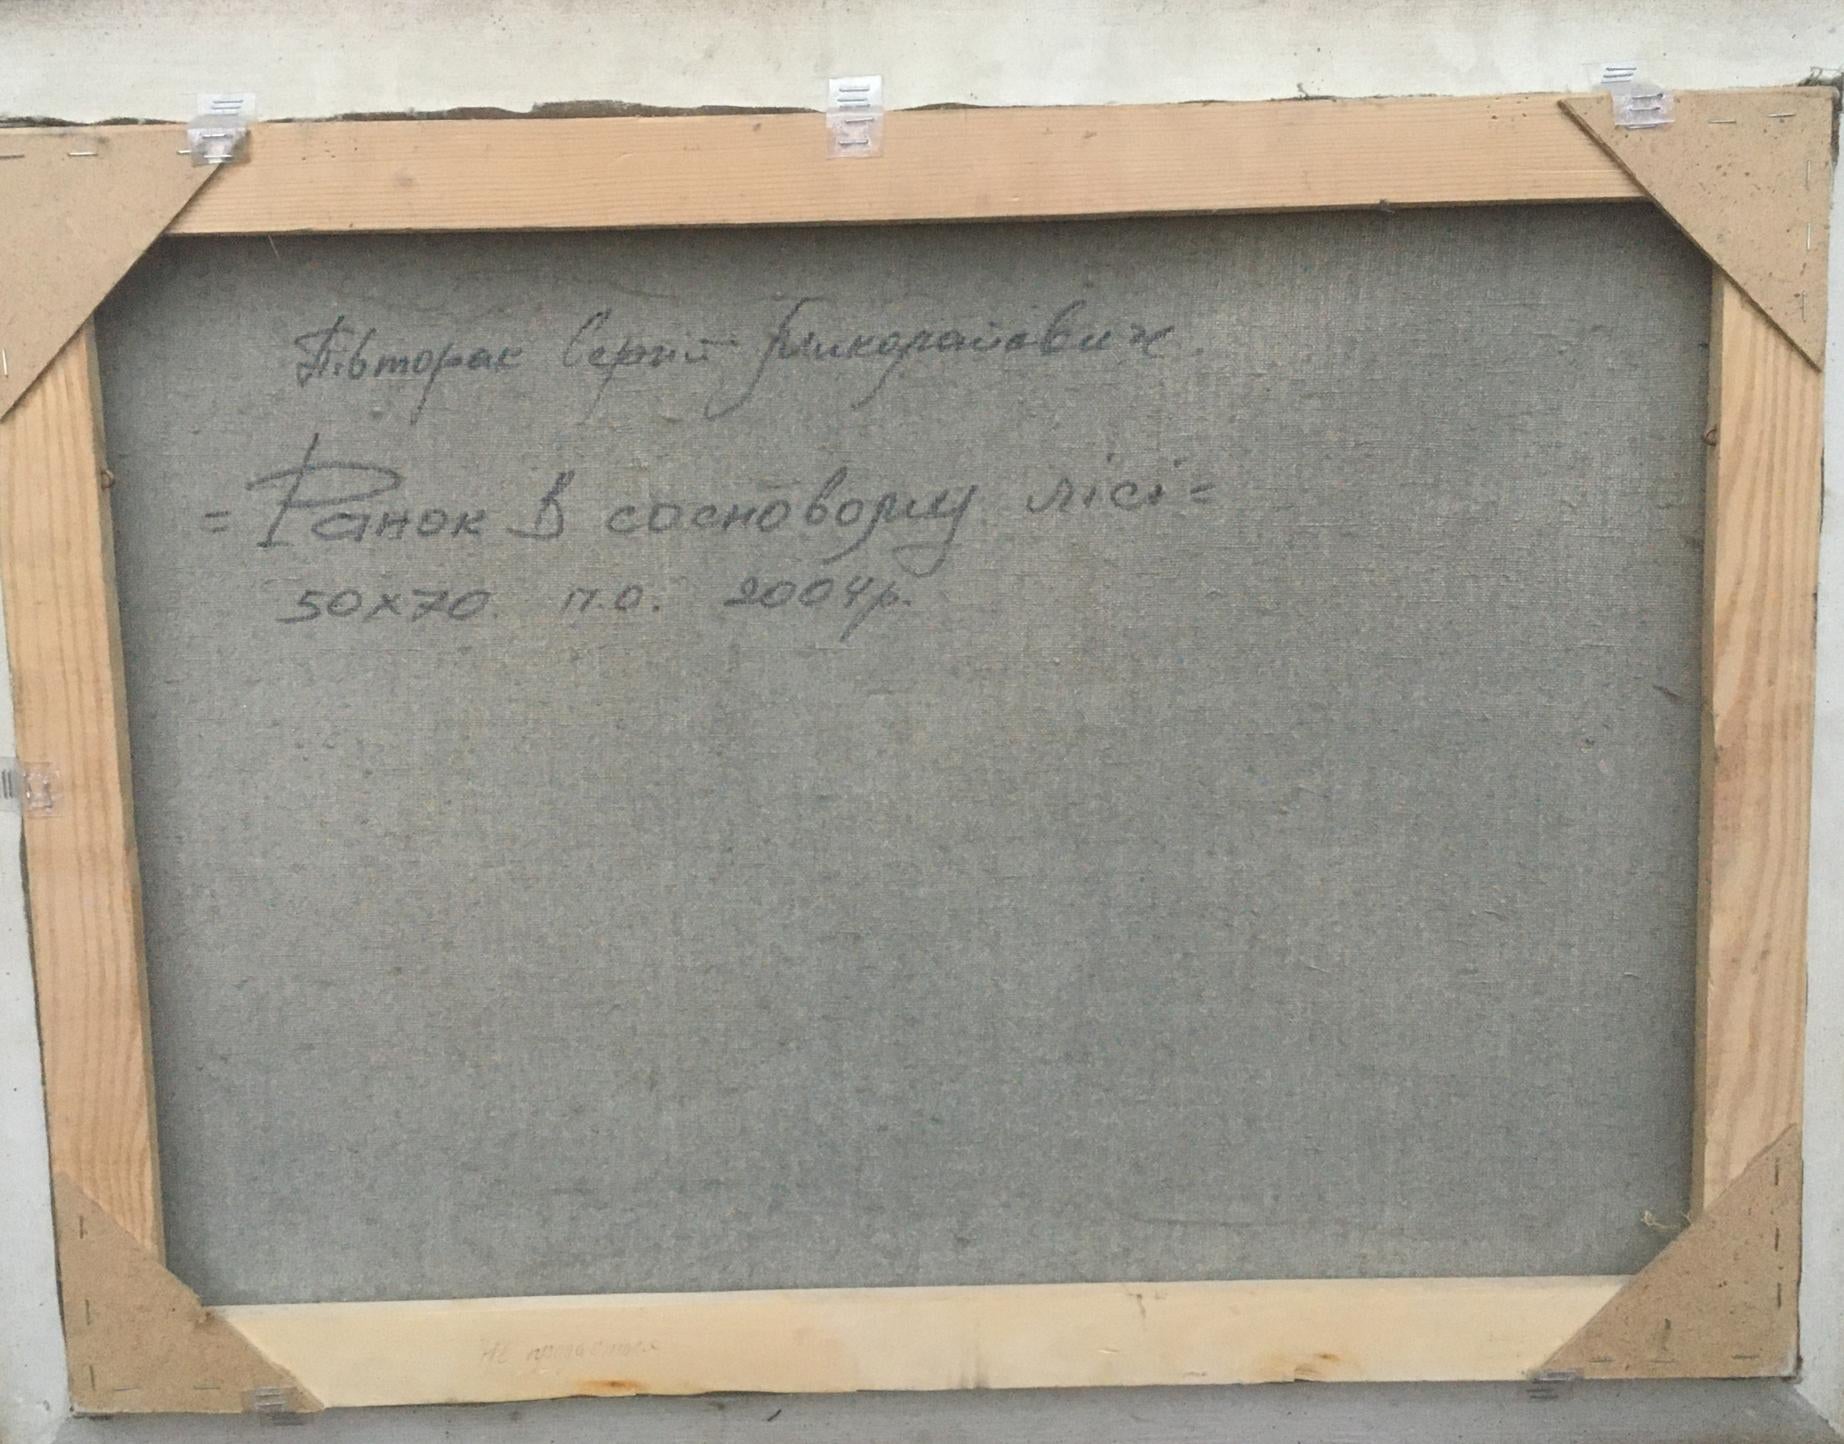 Півторак Сергій Миколайович.
= Ранок в сосновому лісі =
50х70. п.о. 2004р.
Не продається